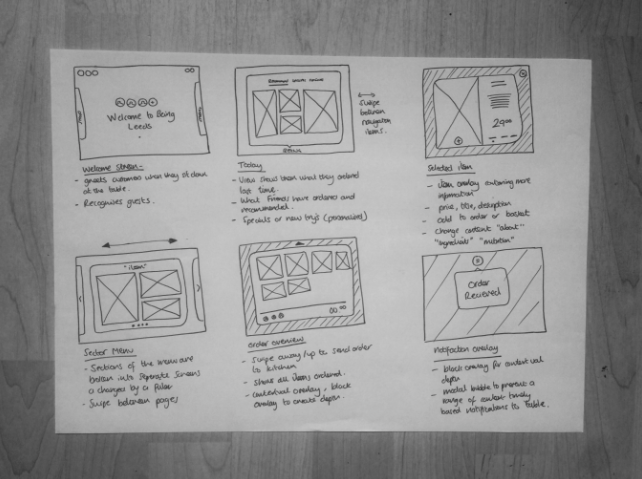 Welcome to Being
Leeds
Welcome Screen -
- greets customers when they sit down
at the table.
- Recognises guests.
Today
- View shows them what they ordered
last time.
- What Friends have ordered and
recommended.
- Specials or new
Swipe
between
navigation
items.
29
Selected item
- view overlay containing more
information
- price, title, description
- add to order or basket
- change content "about"
"ingredients"
"item"
Menu
- Sections of the menu are
into Seperate Screens
- Swipe between pages
order overview
- Swipe away/up to send order
to kitchen
- Shows all items ordered.
- contextual overlay, block
overlay to create depth.
Order
Recieved
notification overlay
- block overlay for contextual
depth
- modal bubble to present a
range of context
based notifications to Table.